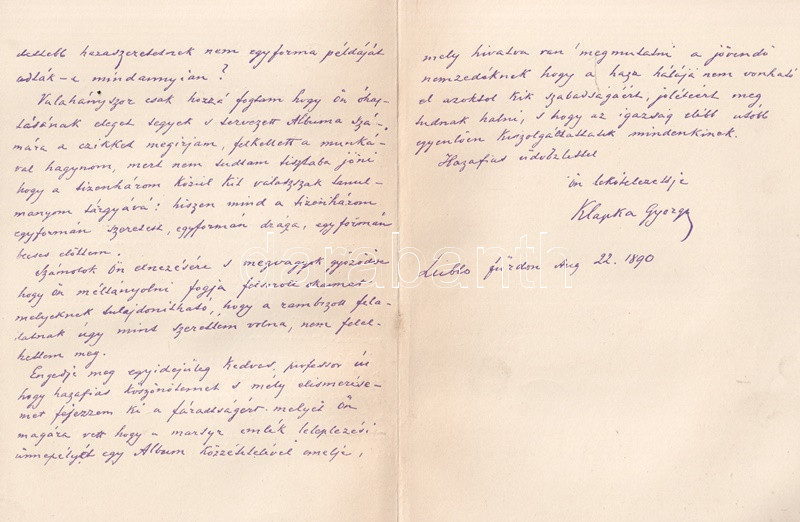 hazaszeretetnek nem egyforma példáját
adták-e mindannyian?
Valahányszor csak hozzá fogtam hogy Ön óhaj-
tásának eleget tegyek s tervezett Albuma szá-
mára a czikket megirjam, fel kellett a munká-
val hagynom, mert nem tudtam tisztába jöni
hogy a tizenhárom közül kit válaszszak tanul-
manyom tárgyává: hiszen mind a tizenhárom
egyformán szeretett, egyformán drága, egyformán
becses előttem.
Számitok Ön elnezésére s megvagyok győződve
hogy Ön méltányolni fogja felsorolt okaimat
melyeknek tulajdonitható, hogy a rambizott fela-
latnak úgy mint szerettem volna, nem felel-
hettem meg.
Engedje meg egyidejüleg kedves professor úr
hogy hazafias köszönetemet s mély elismerése-
met fejezzem ki a fáradtságért melyet Ön
magára vett hogy a martyr emlék leleplezési
ünnepélyét egy Album közzétételével emelje,
mely hivatva van megmutatni a jövendő
nemzedéknek hogy a haza hálája nem vonható
el azoktol kik szabadságáért, jólétéért meg
tudnak halni, s hogy az igazság előbb utóbb
egyenlően kiszolgáltattatik mindenkinek.
Hazafias üdvözlettel
Ön lekötelezettje
Klapka György
Lubló fürdőn Aug 22. 1890
darabanth